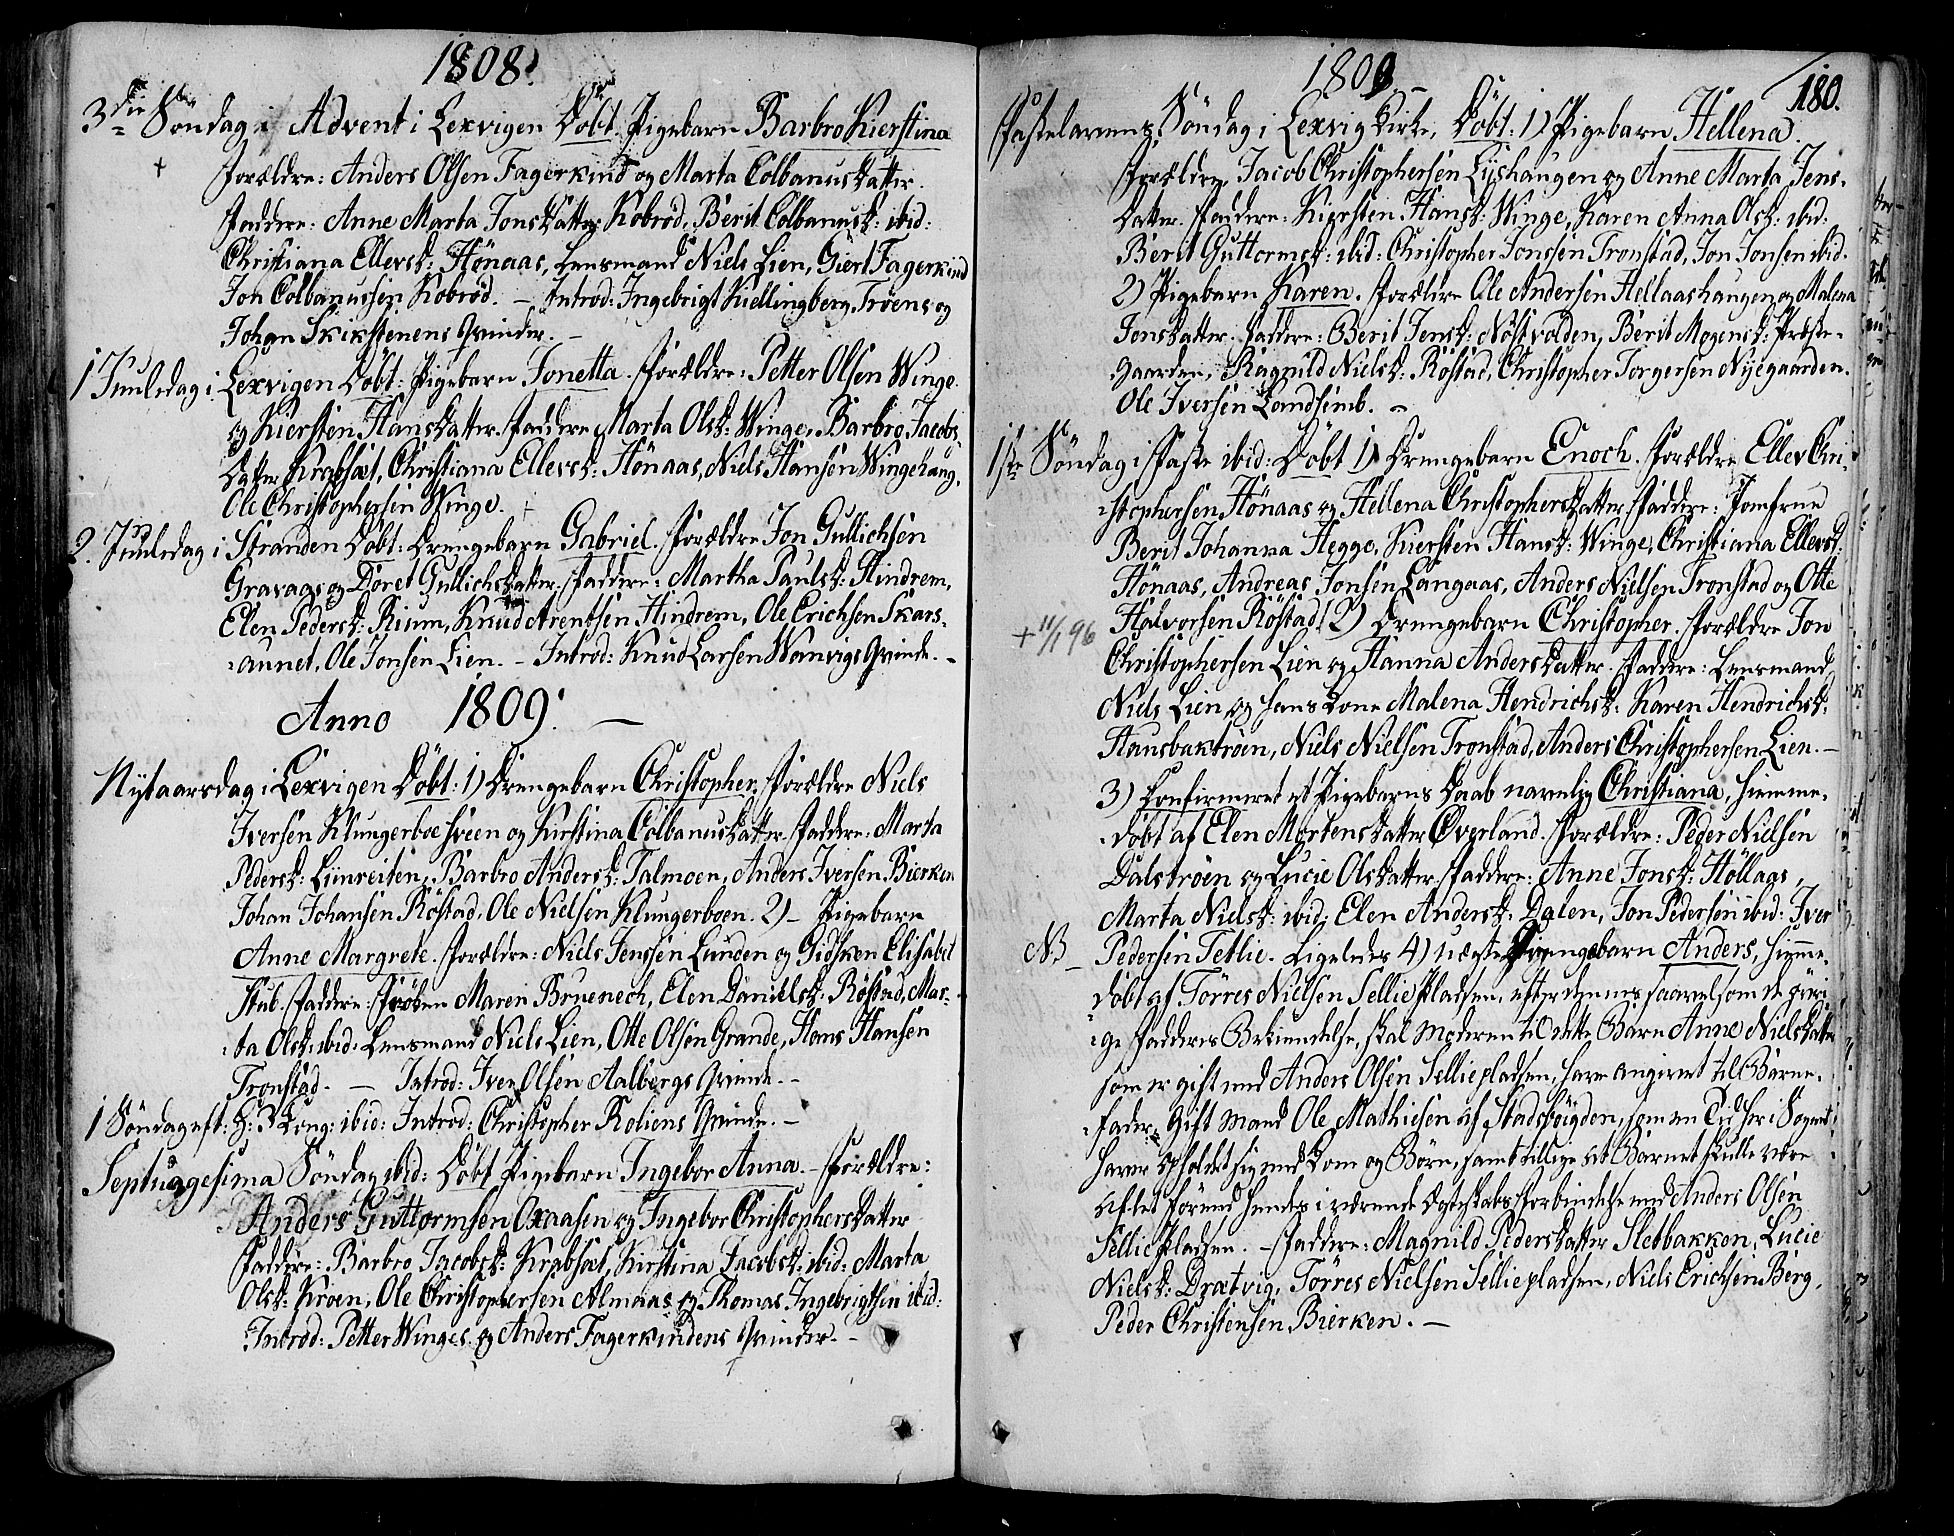 1808.
3die Söndag i Advent i Lexvigen Döbt Pigebarn Barbro Kierstina
Forældre: Anders Olsen Fagerkind og Marta Colbanusdatter.
Faddere: Anne Marta Jonsdatter Kobröd, Berit Colbanusd: ibid:
Christiana Ellevsd: Hönaas, Lensmand Niels Lien, Giert Fagerkind
Jon Colbanussen Kobröd. – Introd: Ingebrigt Kiellingberg, Trøens og
Johan Skikstenens Qvinder.
1 Juuledag i Lexvigen Döbt: Pigebarn Jonetta. Forældre: Petter Olsen Winge
og Kiersten Hansdatter. Faddere Marta Olsd: Winge, Barbro Jacobs-
Datter Krabsæt, Christiana Ellevsd: Hönaas, Niels Hansen Wingehaug,
Ole Christophersen Winge.
2. Juuledag i Stranden Döbt: Drengebarn Gabriel. Forældre Jon Gullichsen
Gravags og Döret Gullichsdatter. Faddere: Martha Paulsd: Hindrem,
Elen Pedersd: Rium, Knud Arentsen Hindrem, Ole Erichsen Skars-
aunet, Ole Jonsen Lien. – Introd: Knud Larsen Wanvigs Qvinde. –
Anno 1809. –
Nytaarsdag i Lexvigen Döbt: 1) Drengebarn Christopher. Forældre Niels
Iversen Klungerboe sveen og Kirstina Colbanusdatter. Faddere: Marta
Pedersd: Limreiten, Barbro Andersd: Talmoen, Anders Iversen Bierken
Johan Johansen Röstad. Ole Nielsen Klungerboen. 2) – Pigebarn
Anne Margrete. Forældre: Niels Jenssen Lunden og Gidsken Elisabet
Stub. Faddere: Fröken Maren Bruenech, Elen Danielsd: Röstad, Mar-
ta Olsd: ibid: Lensmand Niels Lien, Otte Olsen Grande, Hans Hansen
Tronstad. – Introd: Iver Olsen Aalbergs Qvinde. –
1 Söndag eft: H: 3 Kong: ibid: Introd: Christopher Roliens Qvinde. –
Septuagesima Söndag ibid: Döbt Pigebarn Ingebor Anna. – Forældre:
Anders Guttormsen Oxaasen og Ingebor Christophersdatter
Faddere: Barbro Jacobsd: Krabsæt, Kirstina Jacobsd: ibid: Marta
Olsd: Kroen, Ole Christophersen Almaas og Thomas Ingebrigtsen ibid:
Introd: Petter Winges og Anders Fagerkindens Qvinder. –
1809 –
180.
Fastelavens Söndag i Lexvig Kirke, Döbt: 1) Pigebarn Hellena.
Forældre, Jacob Christophersen Lyshaugen og Anne Marta Jens-
Datter. Faddere: Kiersten Hansd: Winge, Karen Anna Olsd: ibid:
Berit Guttormsd: ibid: Christopher Jonssen Tronstad, Jon Jonsen ibid.
2) Pigebarn Karen. Forældre Ole Andersen Hellaashaugen og Malena
Jonsdatter. Faddere: Berit Jensd: Nöstvolden, Berit Mogensd: Præste-
gaarden, Ragnild Nielsd: Röstad, Christopher Jorgersen Nyegaarden.
Ole Iversen Landsemb. –
1ste Söndag i Faste ibid: Döbt 1) Drengebarn Enoch. Forældre Ellev Chri-
stophersen Hönaas og Hellena Christophersdatter. Faddere: Jomfrue
Berit Johanna Hegge, Kiersten Hansd: Winge, Christiana Ellevsd:
Hönaas, Andreas Jonsen Langaas, Anders Nielsen Tronstad og Otte
+ 11/1 96 Halvorsen Röstad. 2) Drengebarn Christopher. Forældre Jon
Christophersen Lien og Hanna Andersdatter. Faddere: Lensmand
Niels Lien og hans Kone Malena Hendrichsd: Karen Hendrichsd:
Hausbaktröen, Niels Nielsen Tronstad, Anders Christophersen Lien. –
3) Confirmeret et Pigebarns Daab navnlig Christiana, hiemme-
döbt af Elen Mortensdatter Överland. Forældre: Peder Nielsen
Dalströen og Lucie Olsdatter. Faddere: Anne Jonsd: Höllaas,
Marta Nielsd: ibid: Elen Andersd: Dalen, Jon Pedersen ibid: Iver
NB – Pedersen Tetlie. Ligeledes 4) Uægte Drengebarn Anders, hiemme-
döbt af Törres Nielsen Selliepladsen, efter dennes saavelsom de övri-
ge Fadderes Bekiendelse, skal Moderen til dette Barn Anne Nielsdatter
som er gift med Anders Olsen Selliepladsen, have angivet til Barne-
fader, Gift Mand Ole Mathiesen af Stadsböigden, som en Tid her i Sognet
haver opholdet sig med Kone og Börn, samt tillige at Barnet skulle være
avlet förend hendes i værende Ægteskabs Forbindelse med Anders Olsen
Selliepladsen. – Faddere: Magnild Pedersdatter Sletbakken, Lucie
Nielsd: Drætvig, Törres Nielsen Selliepladsen, Niels Erichsen Berg,
Peder Christensen Bierken. –